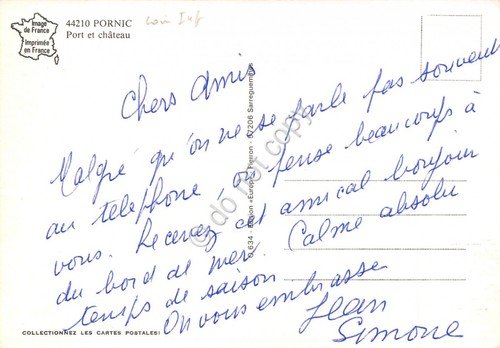 Image
de France
Imprimée
en France
44210 PORNIC
Port et château
Chers Amis
Malgré qu'on ne se parle pas souvent
au téléphone, on pense beaucoup à
vous. Recevez cet amical bonjour
du bord de mer. Calme absolu
temps de saison
On vous embrasse
Jean
Simone
634 - Édition «Europ» Pierron - 57206 Sarreguemines
do not copy
COLLECTIONNEZ LES CARTES POSTALES!